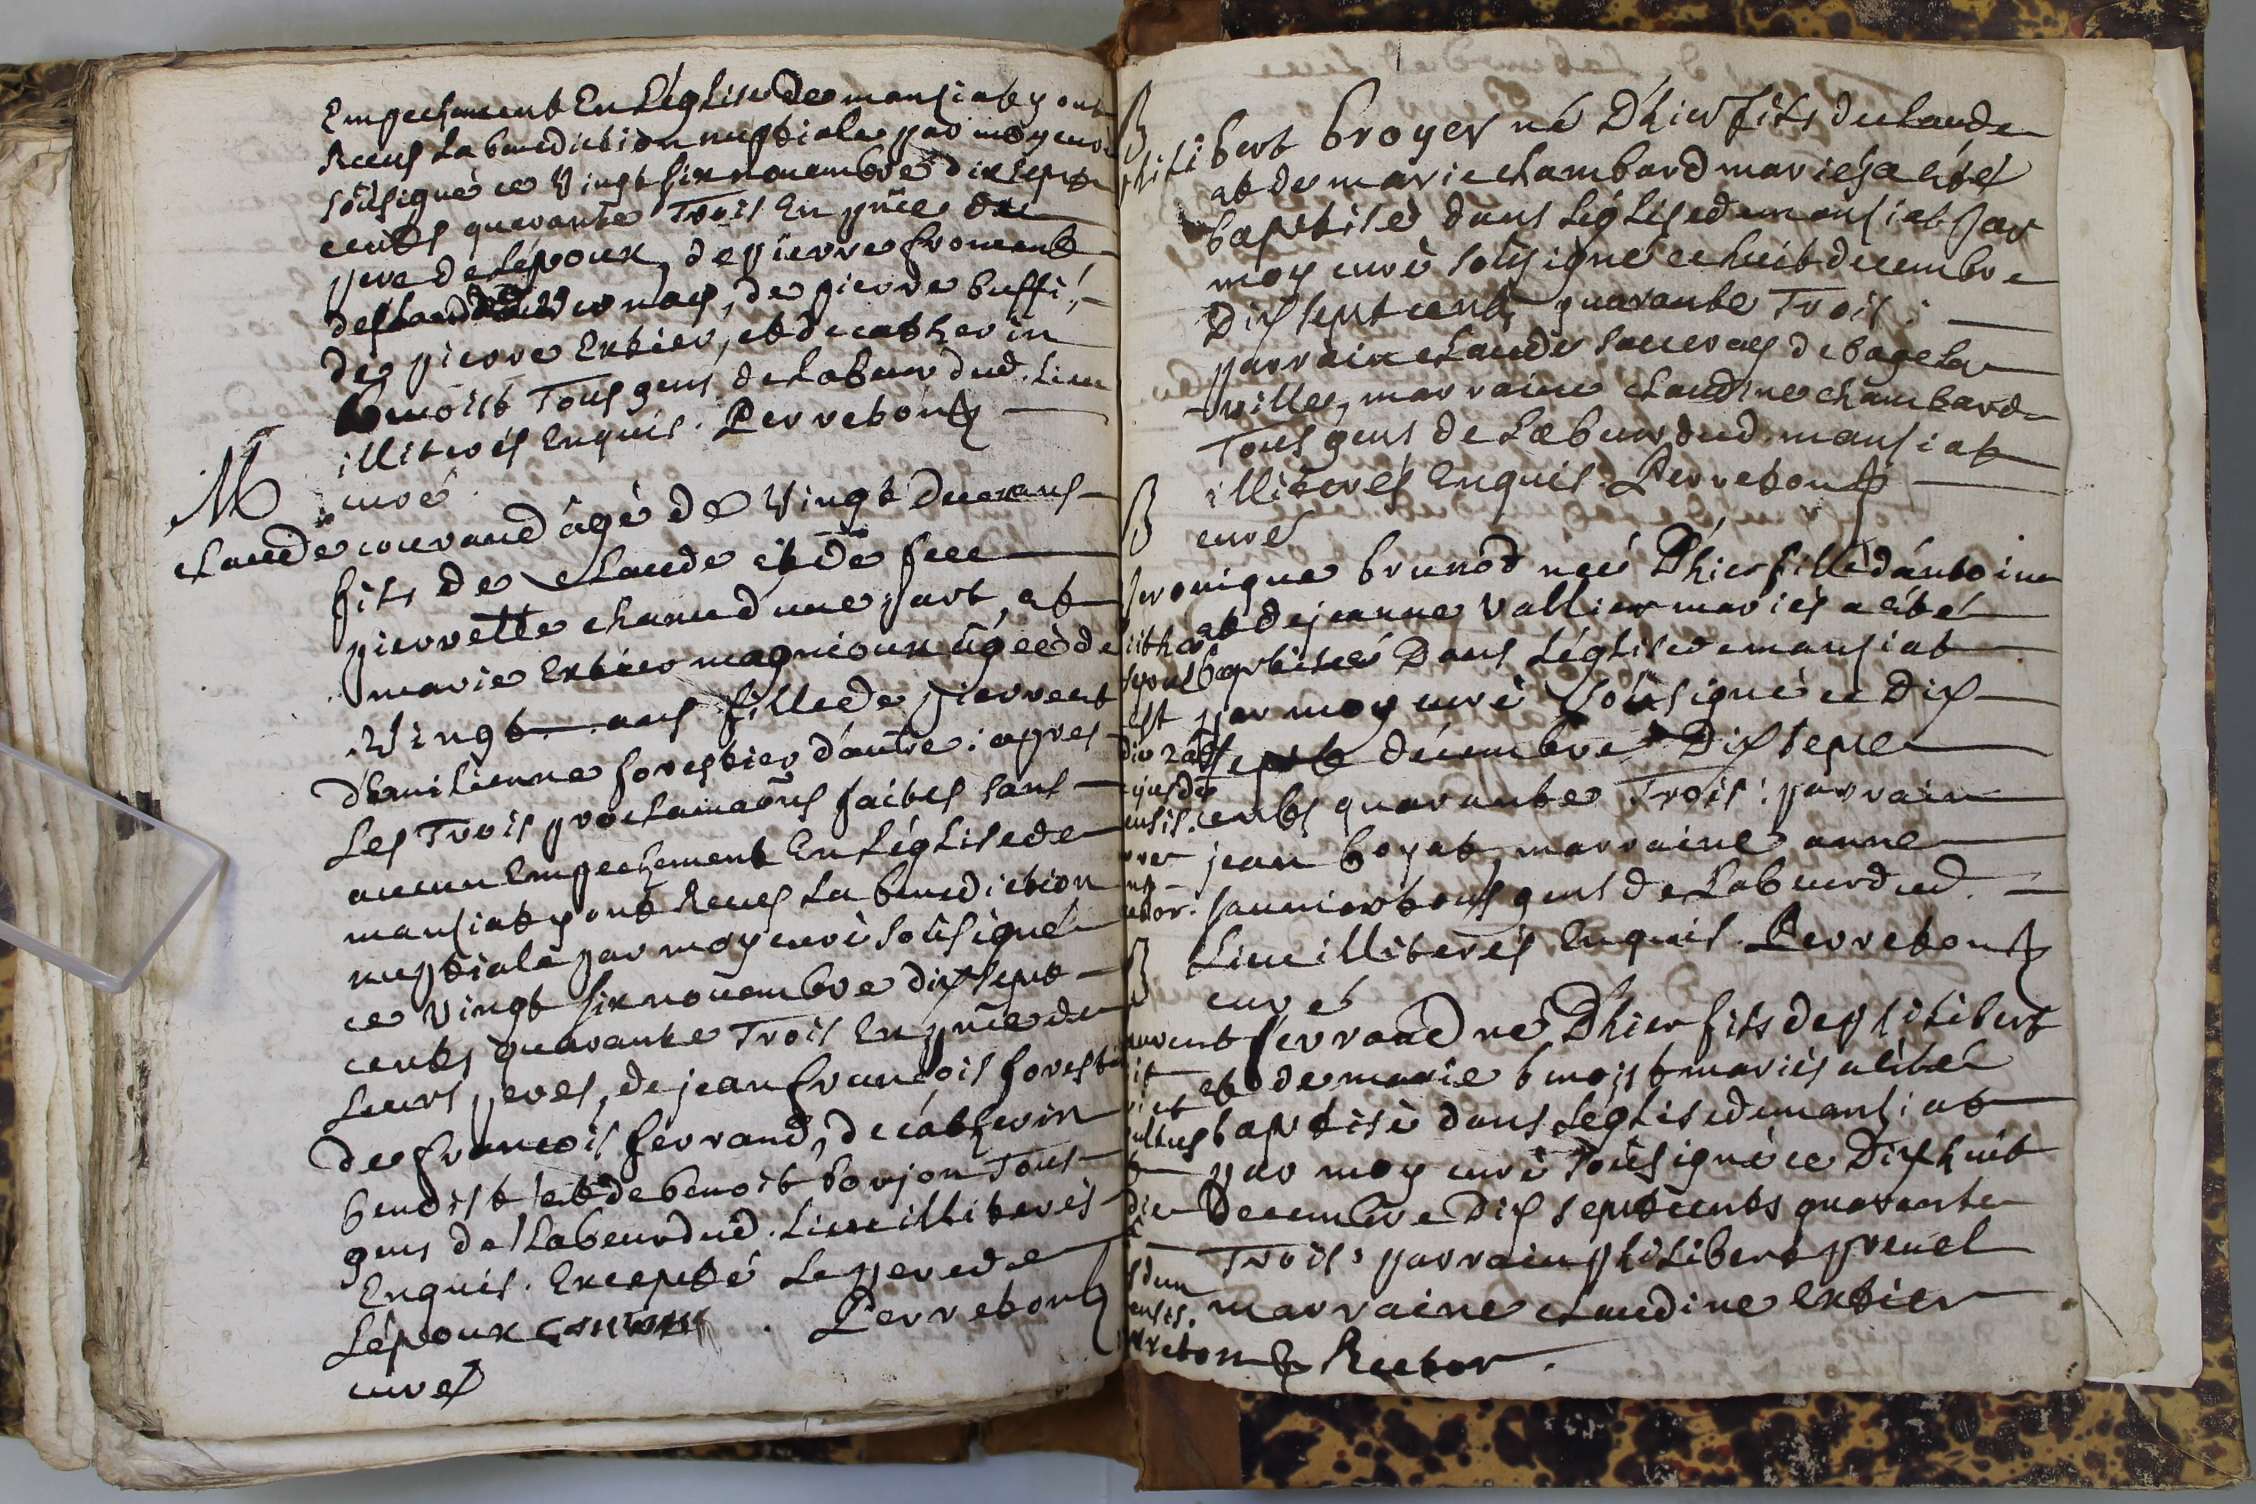 Empechement En L'église de mansiat y ont
Receu la benediction nuptiale par moy curé
soûsigné ce Vingt six novembre dix sept
cents quarante Trois En pñce du
pere de L'époux, de pierre froment
de pierre buffi,
de pierre Extier, et de catherin
benoist Tous gens de Labeur dud. Lieu
illiterés Enquis. Perretons
curé
M
Claude couraud âgé de Vingt deux ans
fils de Claude et de feue
pierrette charud'une part, et
marie Extier magnioux âgée de
Vingt ans fille de pierre et
d'Emilienne forestier d'autre: apres
Les Trois proclamaõns faites sans
aucun Empechement En L'église de
mansiat y ont Receu La benediction
nuptiale par moy curé soûsigné
ce Vingt six novembre dix sept
cents quarante Trois En pñce de
Leurs peres, de jean françois forestier
de françois ferrand, de catherin
benoist et de benoit borjon Tous
gens de Labeur dud. Lieu illiterés
Enquis. Excepté Le pere de
L'époux . Perretons
curé
B
philibert broyer né D'hier fils de claude
et de marie chambard mariés a été
baptisé dans L'église de mansiat par
moy curé soûsigné ce huit decembre
Dix sept cents quarante Trois:
parrain claude de bage la
ville, marraine claudine chambard
Tous gens de Labeur dud. mansiat
illiterés Enquis. Perretons
curé
B
veronique brunod née D'hier fille d'antoine
et de jeanne Vallier mariés a été
baptisée Dans L'église de mansiat
par moy curé soûsigné ce Dix
sept decembre Dix sept
cents quarante Trois: parrain
jean boyat, marraine anne
saunier tous gens de Labeur dud.
Lieu illiterés Enquis. Perretons
curé
B
Laurent ferrand né D'hier fils de philibert
et de marie benoist mariés a été
baptisé dans L'église de mansiat
par moy curé soûsigné ce Dix huit
Decembre Dix sept cents quarante
Trois: parrain philibert prevel
marraine claudine Extier
Perretons Rector.